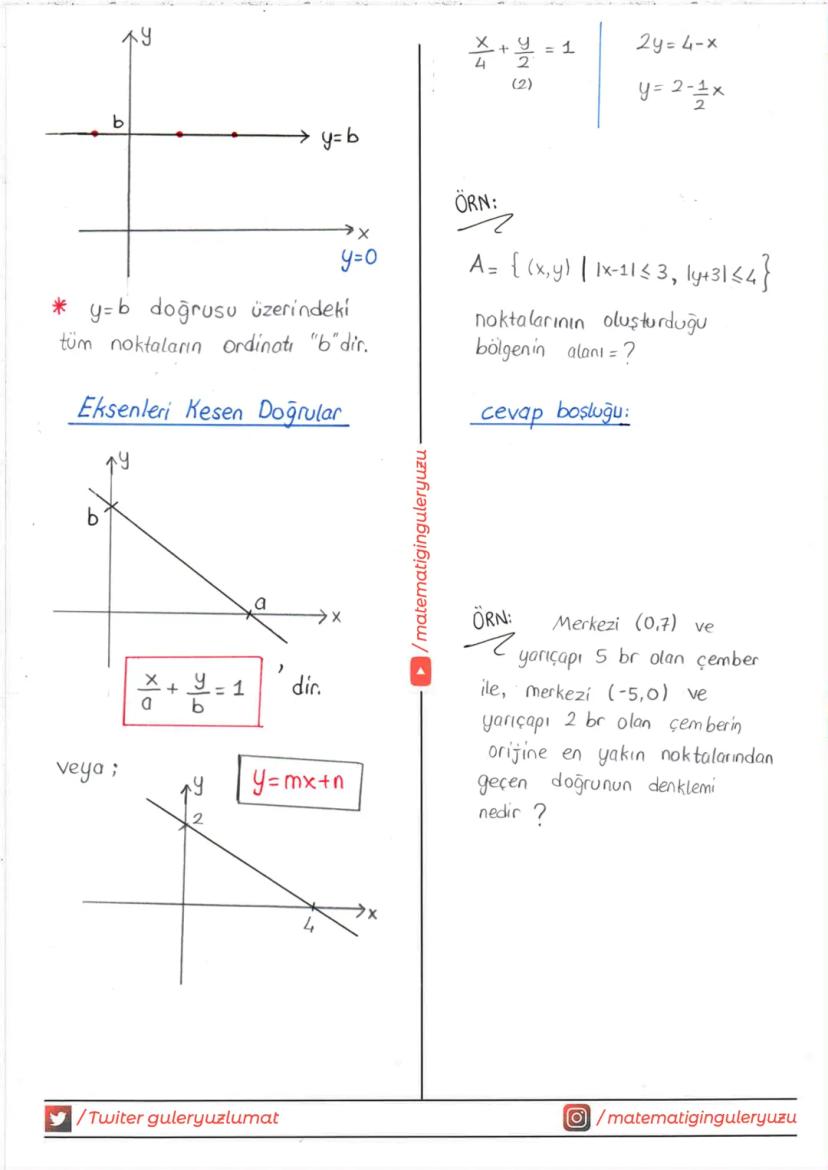 y
b
y=b
x
y=0
* y=b doğrusu üzerindeki
tüm noktaların ordinatı "b"dir.
Eksenleri Kesen Doğrular
y
b
a
x
x/a + y/b = 1 'dir.
veya ;
y=mx+n
y
2
x
4
x/4 + y/2 = 1
(2)
2y= 4-x
y= 2-1/2x
ÖRN:
A= { (x,y) | |x-1|≤3, |y+3|≤4}
noktalarının oluşturduğu
bölgenin alanı = ?
cevap boşluğu:
/matematiginguleryuzu
ÖRN: Merkezi (0,7) ve
yarıçapı 5 br olan çember
ile, merkezi (-5,0) ve
yarıçapı 2 br olan çemberin
orijine en yakın noktalarından
geçen doğrunun denklemi
nedir ?
/Twiter guleryuzlumat
/matematiginguleryuzu